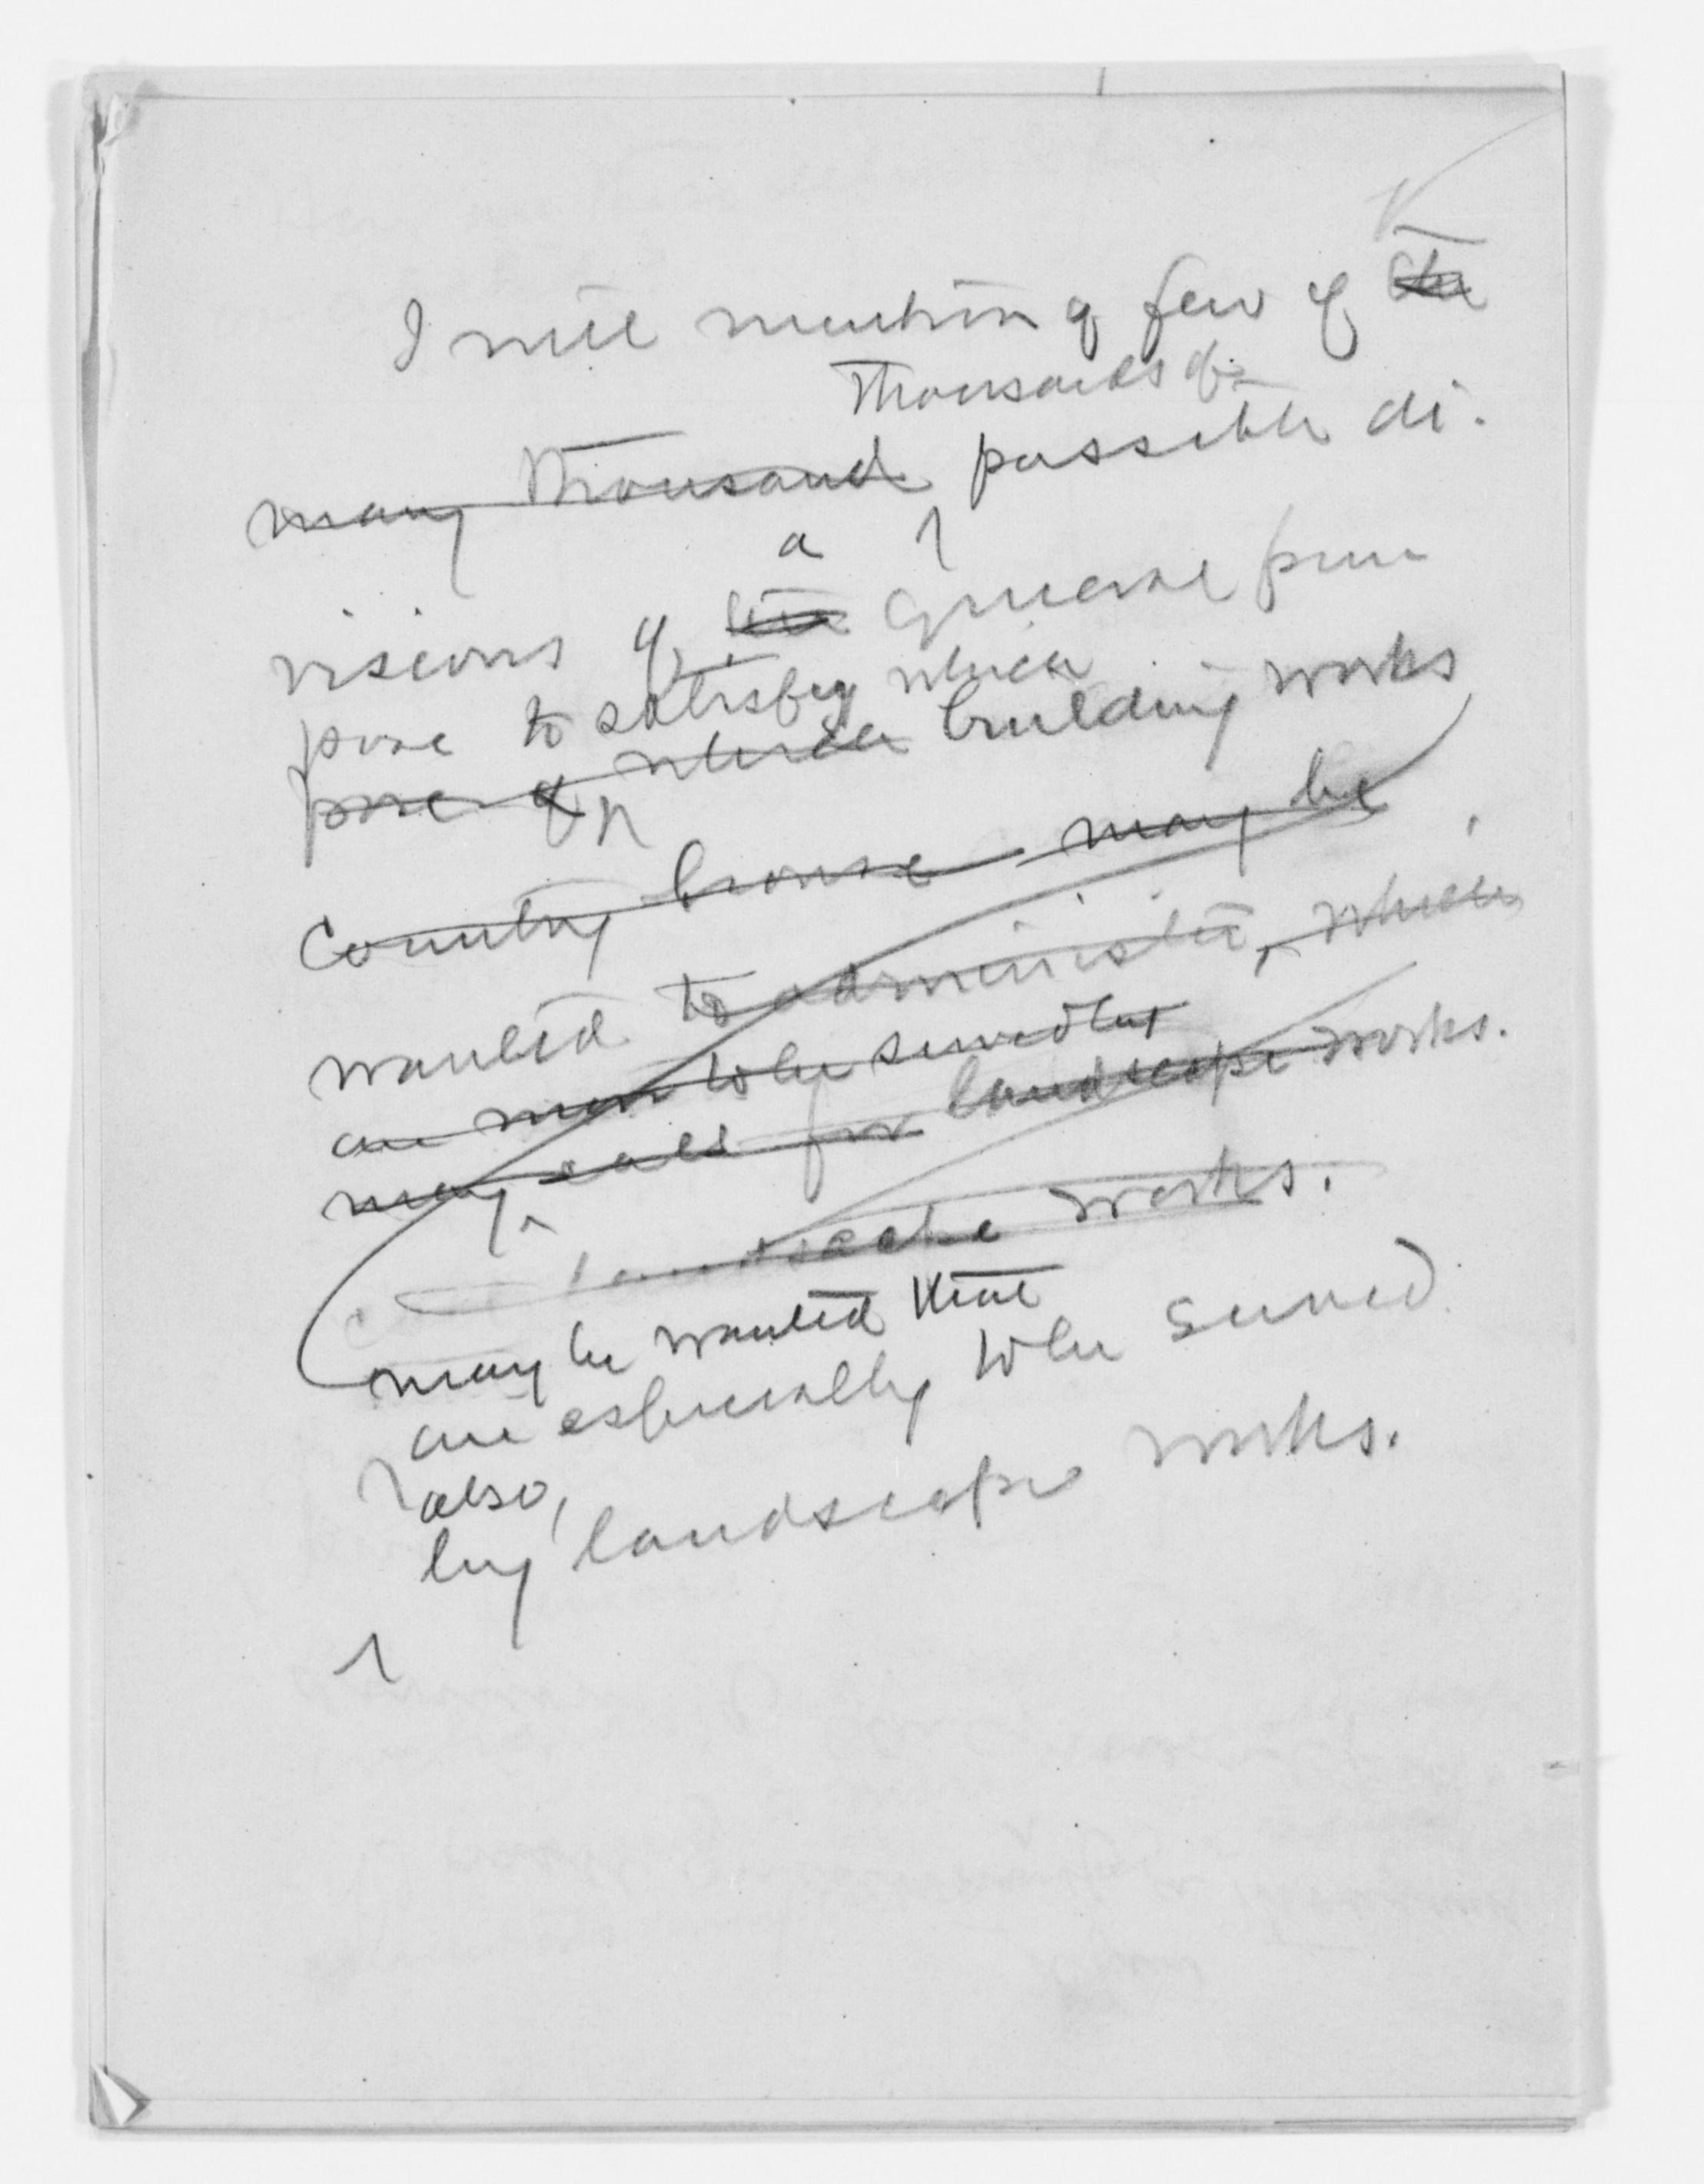 I will mention a few of the
thousands of
many thousand possible di-
a
visions of the general pur
pose to satisfy which
pose of which building works
Country house may be
wanted to administer, which
are more to be served by
may call for landscape works.
landscape works.
may be wanted that
are especially to be served
also,
by landscape works.